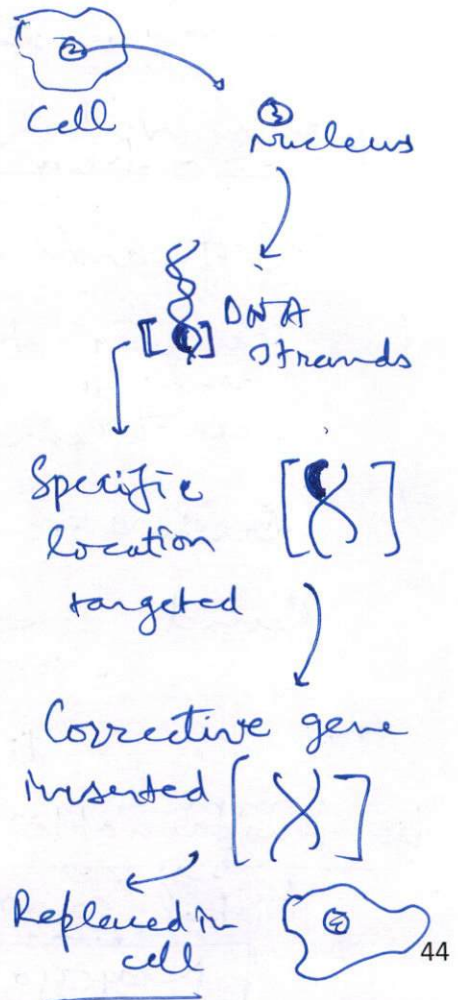 Cell
Nucleus
DNA
strands
Specific
location
targeted
Corrective gene
inserted
Replaced in
cell
44